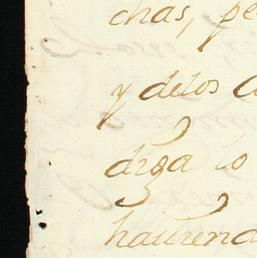 chas, pe
y delos
diga lo
hauiend